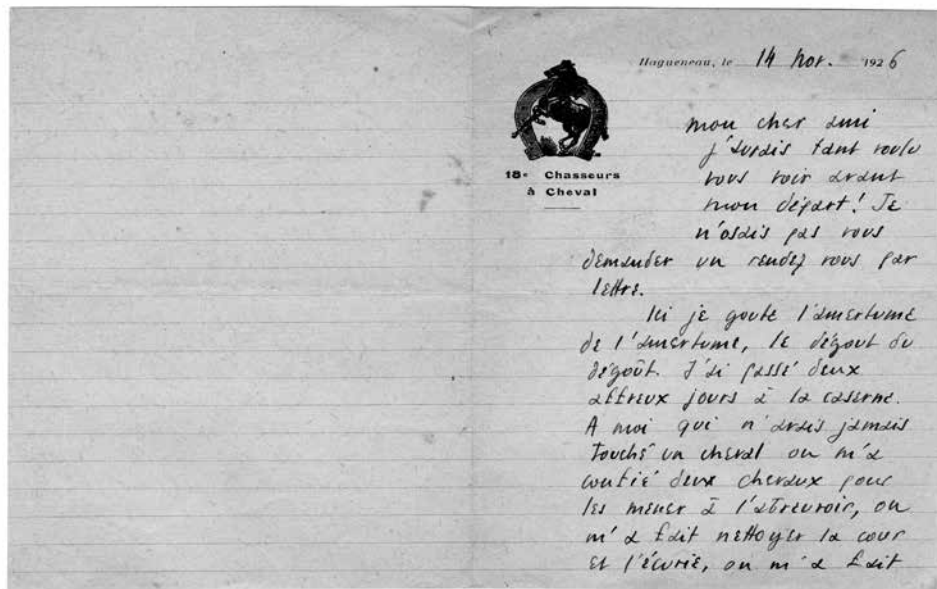 Haguenau, le 14 nov. 1926
18e Chasseurs
à Cheval
mon cher ami
j'aurais tant voulu
vous voir avant
mon départ! Je
n'osais pas vous
demander un rendez vous par
lettre.
Ici je goute l'amertume
de l'amertume, le dégout du
dégoût. J'ai passé deux
affreux jours à la caserne.
A moi qui n'avais jamais
touché un cheval on m'a
confié deux chevaux pour
les mener à l'abreuvoir, on
m'a fait nettoyer la cour
et l'écurie, on m'a fait